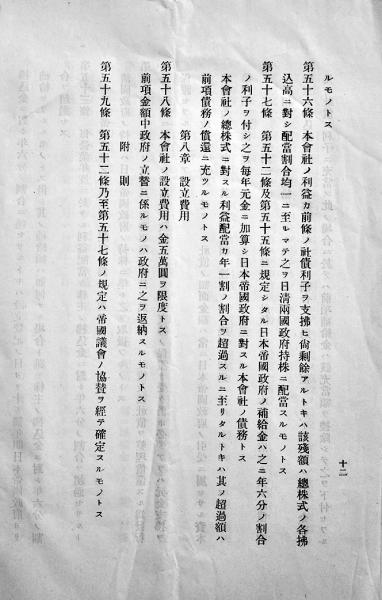 ルモノトス
第五十六條　本會社ノ利益カ前條ノ社債利子ヲ支拂ヒ尙剩餘アルトキハ該殘額ハ總株式ノ各拂
込高ニ對シ配當割合均一ニ至ルマテ之ヲ日清兩國政府持株ニ配當スルモノトス
第五十七條　第五十二條及第五十五條ニ規定シタル日本帝國政府ノ補給金ハ之ニ年六分ノ割合
ノ利子ヲ付シ之ヲ每年元金ニ加算シ日本帝國政府ニ對スル本會社ノ債務トス
本會社ノ總株式ニ對スル利益配當カ年一割ノ割合ヲ超過スルニ至リタルトキハ其ノ超過額ハ
前項債務ノ償還ニ充ツルモノトス
第八章　設立費用
第五十八條　本會社ノ設立費用ハ金五萬圓ヲ限度トス
前項金額中政府ノ立替ニ係ルモノハ政府ニ之ヲ返納スルモノトス
附　則
第五十九條　第五十二條乃至第五十七條ノ規定ハ帝國議會ノ協贊ヲ經テ確定スルモノトス
十二